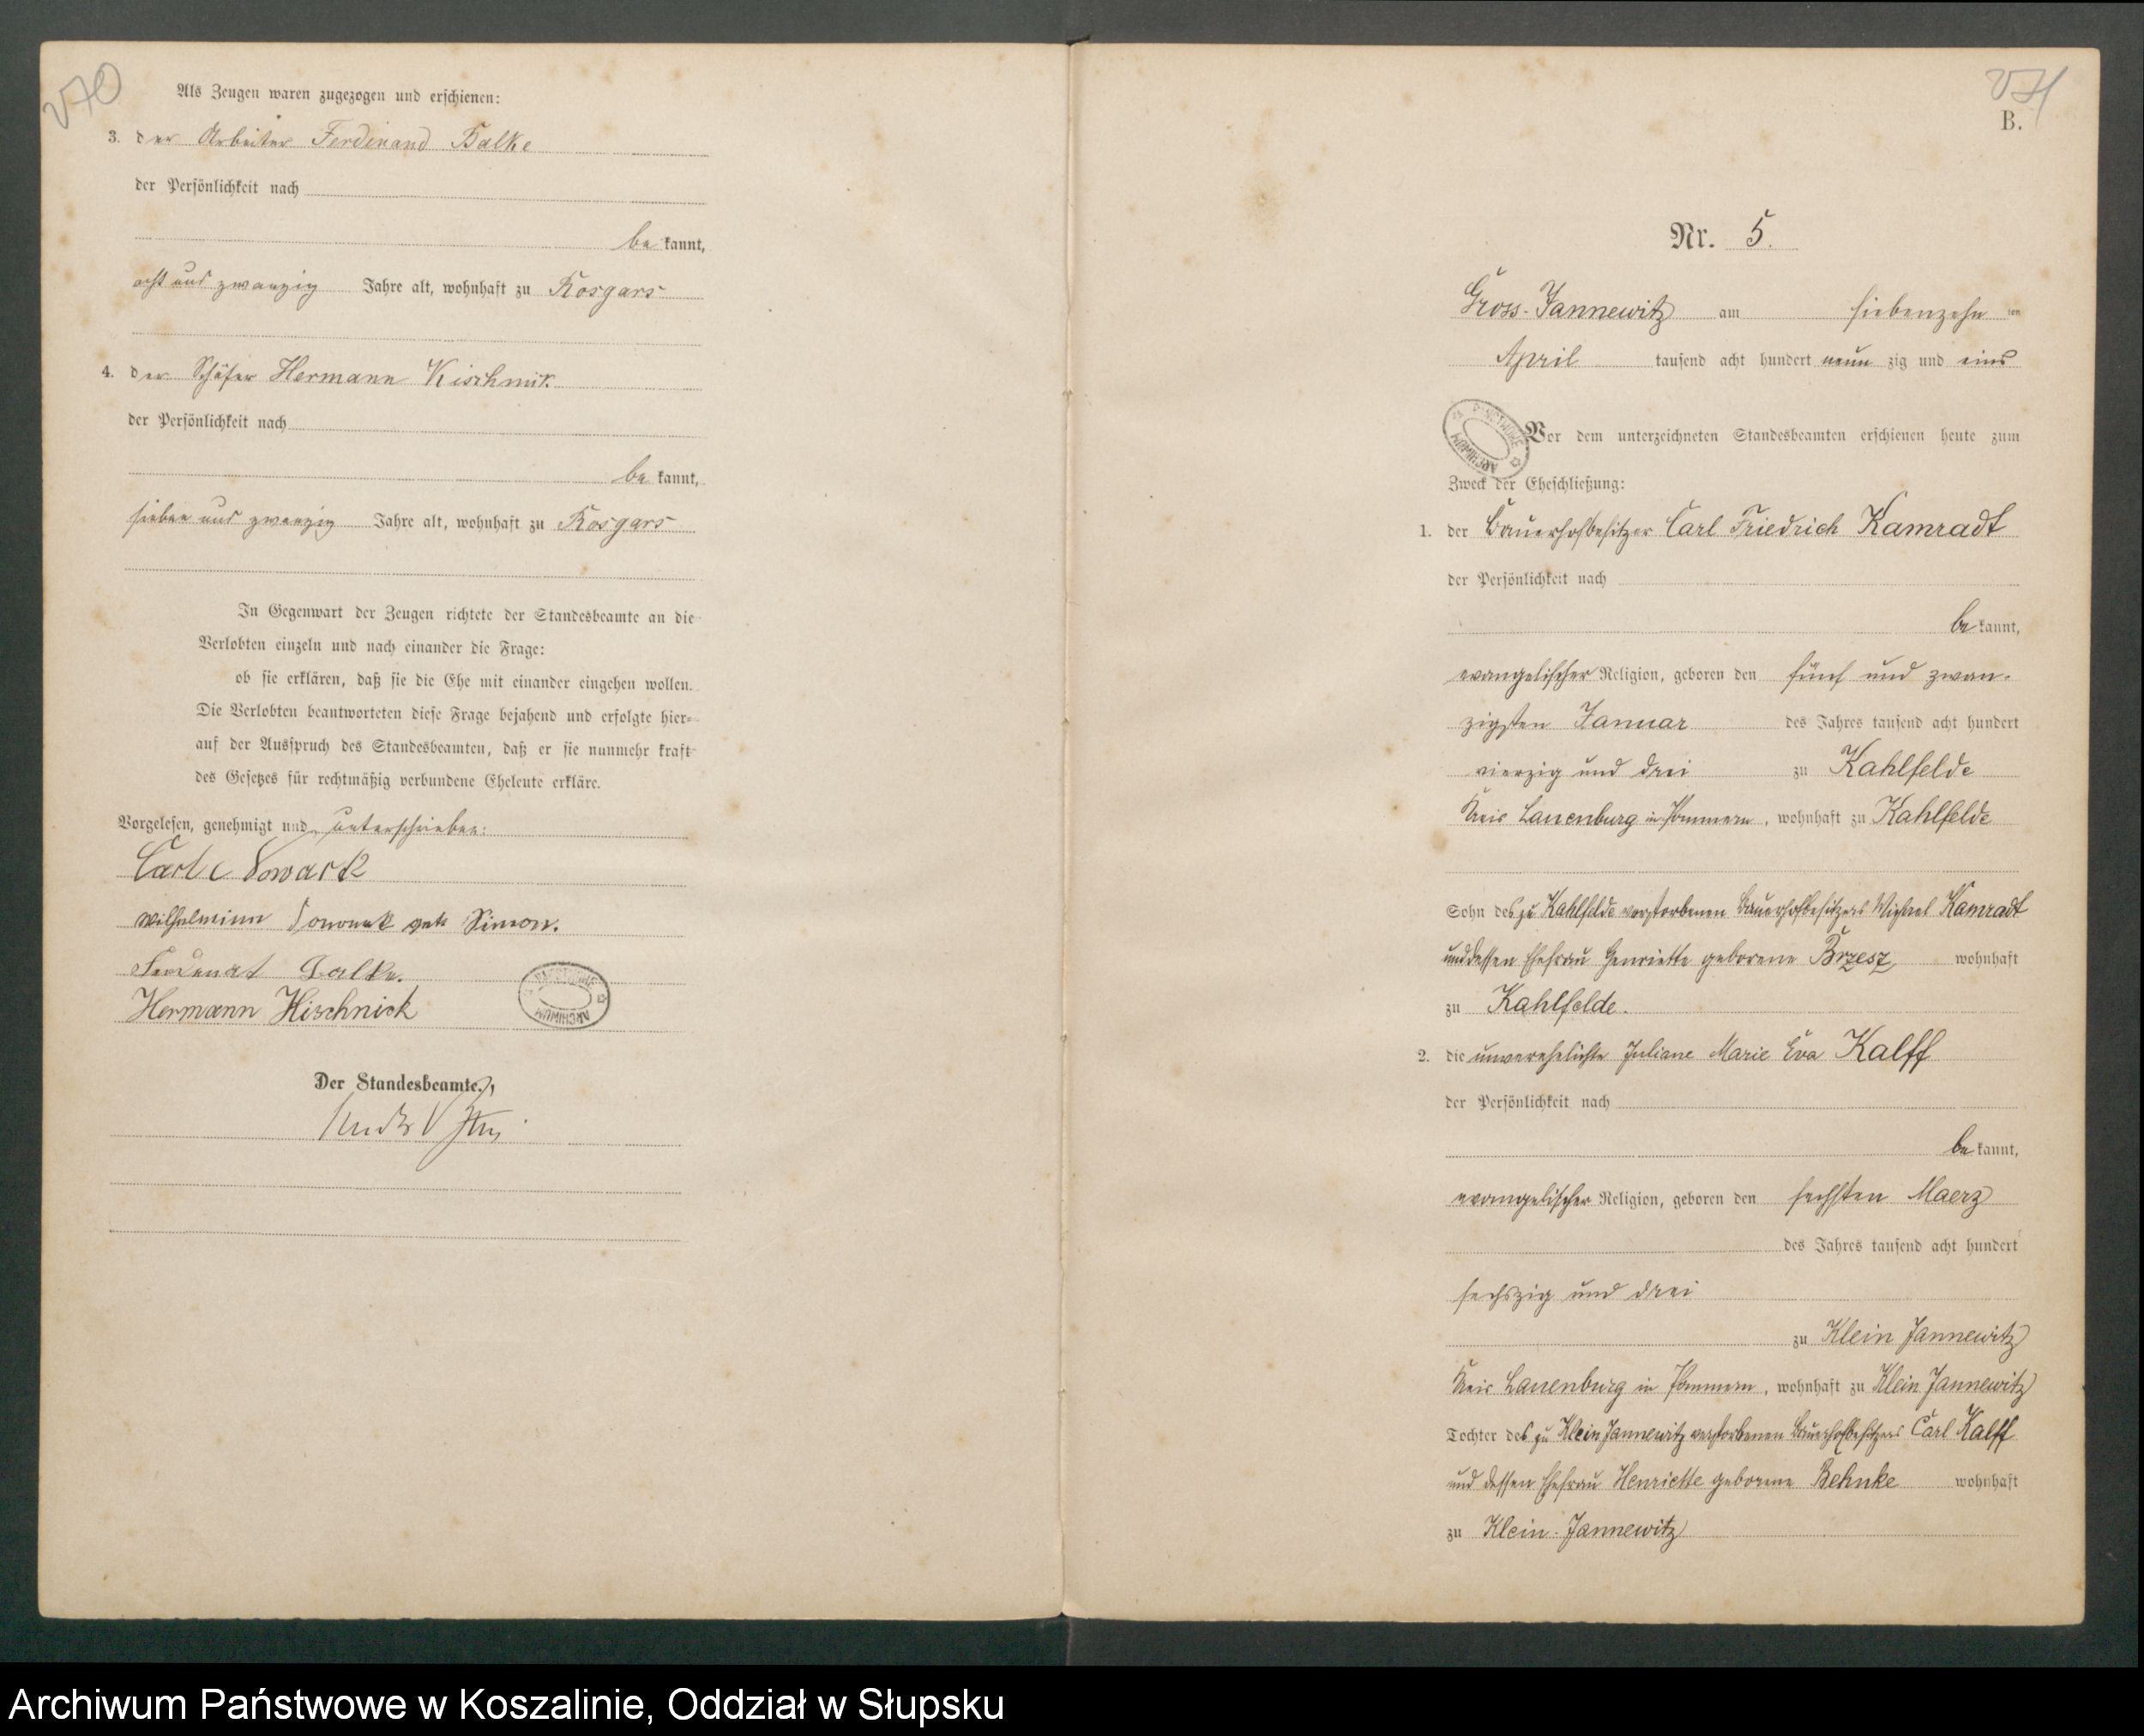 270
Als Zeugen waren zugezogen und erschienen:
3. der Arbeiter Ferdinand Balke
der Persönlichkeit nach
be kannt,
acht und zwanzig Jahre alt, wohnhaft zu Rosgars
4. der Schäfer Hermann Kischnik
der Persönlichkeit nach
be kannt,
sieben und zwanzig Jahre alt, wohnhaft zu Rosgars
In Gegenwart der Zeugen richtete der Standesbeamte an die
Verlobten einzeln und nach einander die Frage:
ob sie erklären, daß sie die Ehe mit einander eingehen wollen.
Die Verlobten beantworteten diese Frage bejahend und erfolgte hier-
auf der Ausspruch des Standesbeamten, daß er sie nunmehr kraft
des Gesetzes für rechtmäßig verbundene Eheleute erkläre.
Vorgelesen, genehmigt und unterschrieben:
Carl
Wilhelmine geb Simon.
Balke.
Hermann Hischnick
PAŃSTWOWE ARCHIWUM
Der Standesbeamte.
271
B.
Nr. 5.
Gross-Jannewitz am siebenzehn ten
April tausend acht hundert neun zig und eins
PAŃSTWOWE ARCHIWUM
Vor dem unterzeichneten Standesbeamten erschienen heute zum
Zweck der Eheschließung:
1. der Bauerhofbesitzer Carl Friedrich Kamradt
der Persönlichkeit nach
be kannt,
evangelischer Religion, geboren den fünf und zwan-
zigsten Januar des Jahres tausend acht hundert
vierzig und drei zu Kahlfelde
Kreis Lauenburg in Pommern, wohnhaft zu Kahlfelde
Sohn des zu Kahlfelde verstorbenen Bauerhofbesitzers Michael Kamradt
und dessen Ehefrau Henriette geborene Brzesz wohnhaft
zu Kahlfelde.
2. die unverehelichte Juliane Marie Eva Kalff
der Persönlichkeit nach
be kannt,
evangelischer Religion, geboren den sechsten Maerz
des Jahres tausend acht hundert
sechszig und drei
zu Klein Jannewitz
Kreis Lauenburg in Pommern, wohnhaft zu Klein Jannewitz
Tochter des zu Klein Jannewitz verstorbenen Bauerhofbesitzers Carl Kalff
und dessen Ehefrau Henriette geborene Behnke wohnhaft
zu Klein-Jannewitz
Archiwum Państwowe w Koszalinie, Oddział w Słupsku